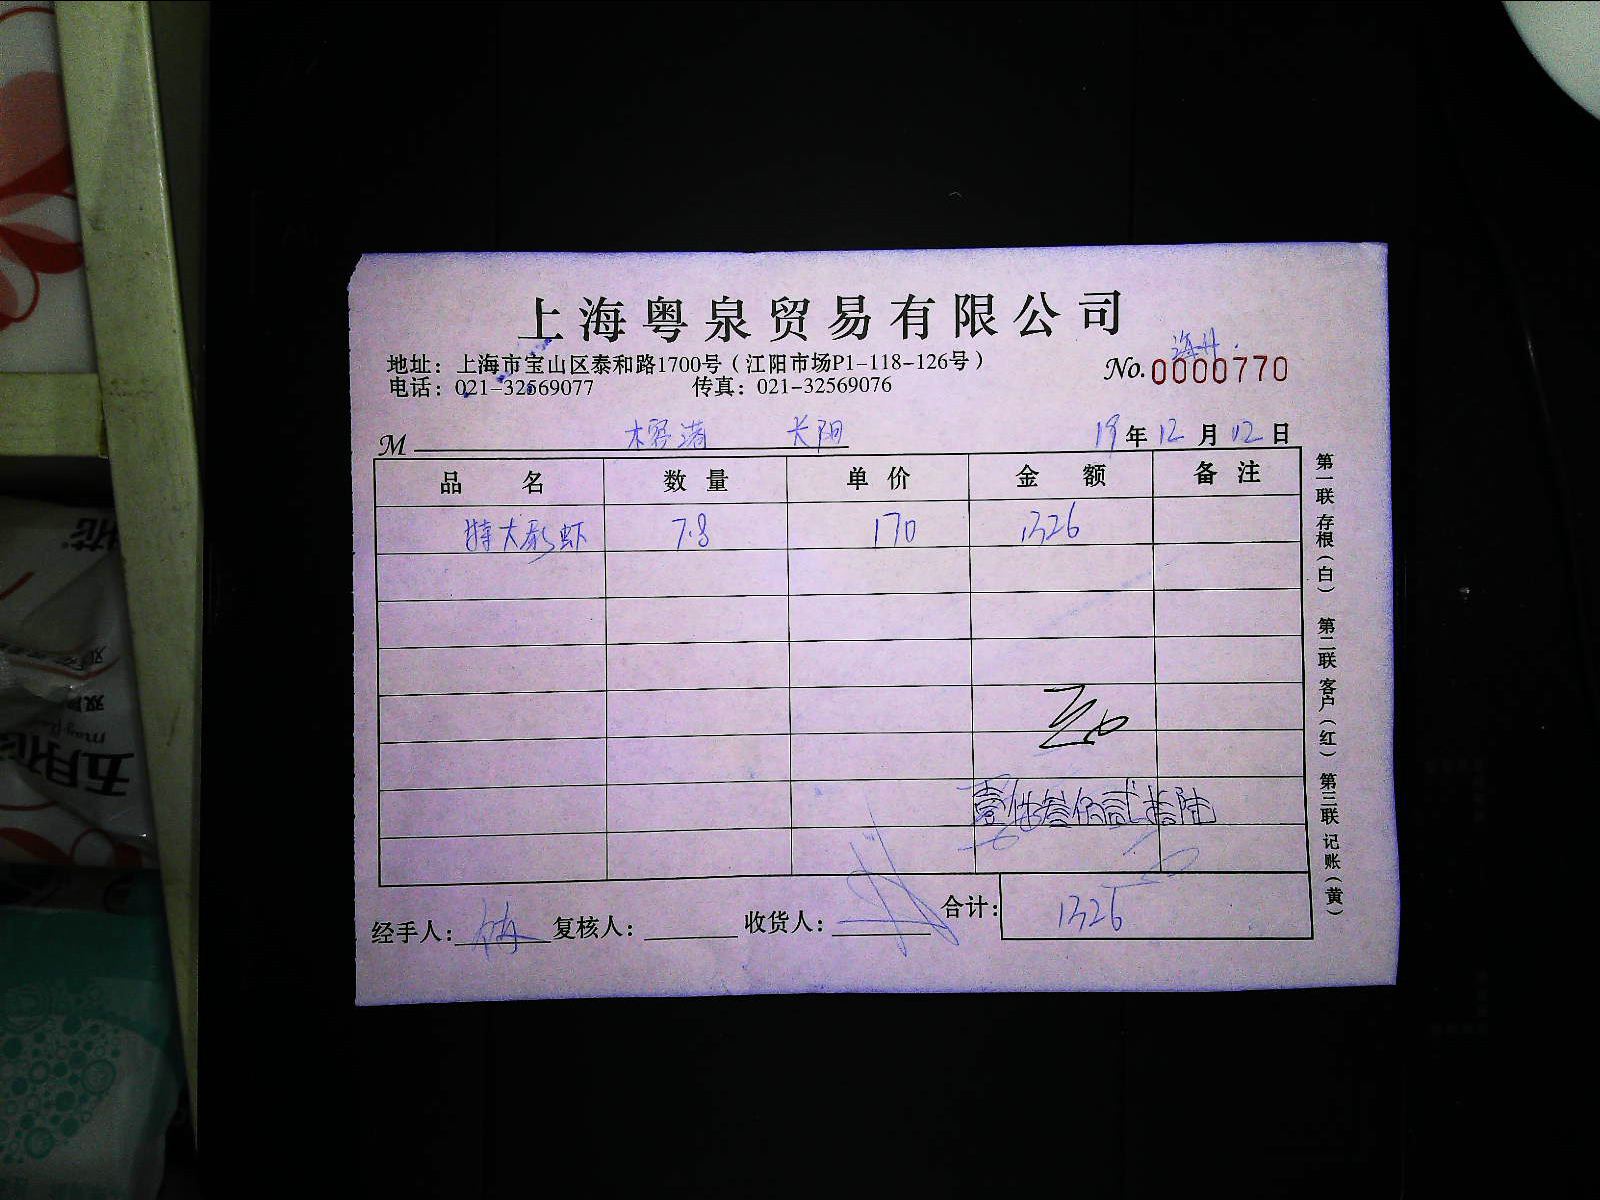 上海粤泉贸易有限公司
地址：上海市宝山区泰和路1700号（江阳市场P1-118-126号）
电话：021-32569077 传真：021-32569076
No.0000770
M 长阳 19年12月12日
品名 数量 单价 金额 备注
特大彩虾 7.8 170 1326
壹仟叁佰贰拾陆
经手人： 复核人： 收货人： 合计：1326
第一联 存根（白） 第二联 客户（红） 第三联 记账（黄）
五月花